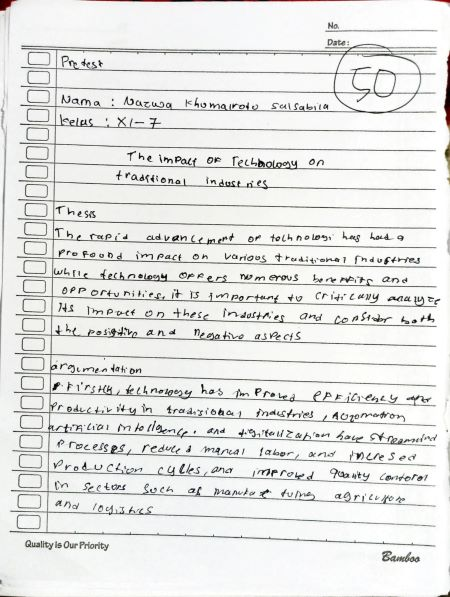 No.
Date:
50
Pretest
Nama : Nazwa Khumairoto Salsabila
Kelas : XI-7
The impact of Technology on
traditional industries
Thesis
The rapid advancement of tolhnologi has had a
profound impact on various traditional industries
while technology offers numerous benefits and
opportunities, it is important to critically analyze
its impact on these industries and consider both
the positive and negative aspects
argumentation
Firstly, technology has improved efficiency
productivity in tradisional industries, Automation
artificial intelligence, and digitalization have
processes, reduced manual labor, and incresed
production cycles, and improved quality contorol
in sectors such as agriculture
and logistics
Quality is Our Priority
Bamboo